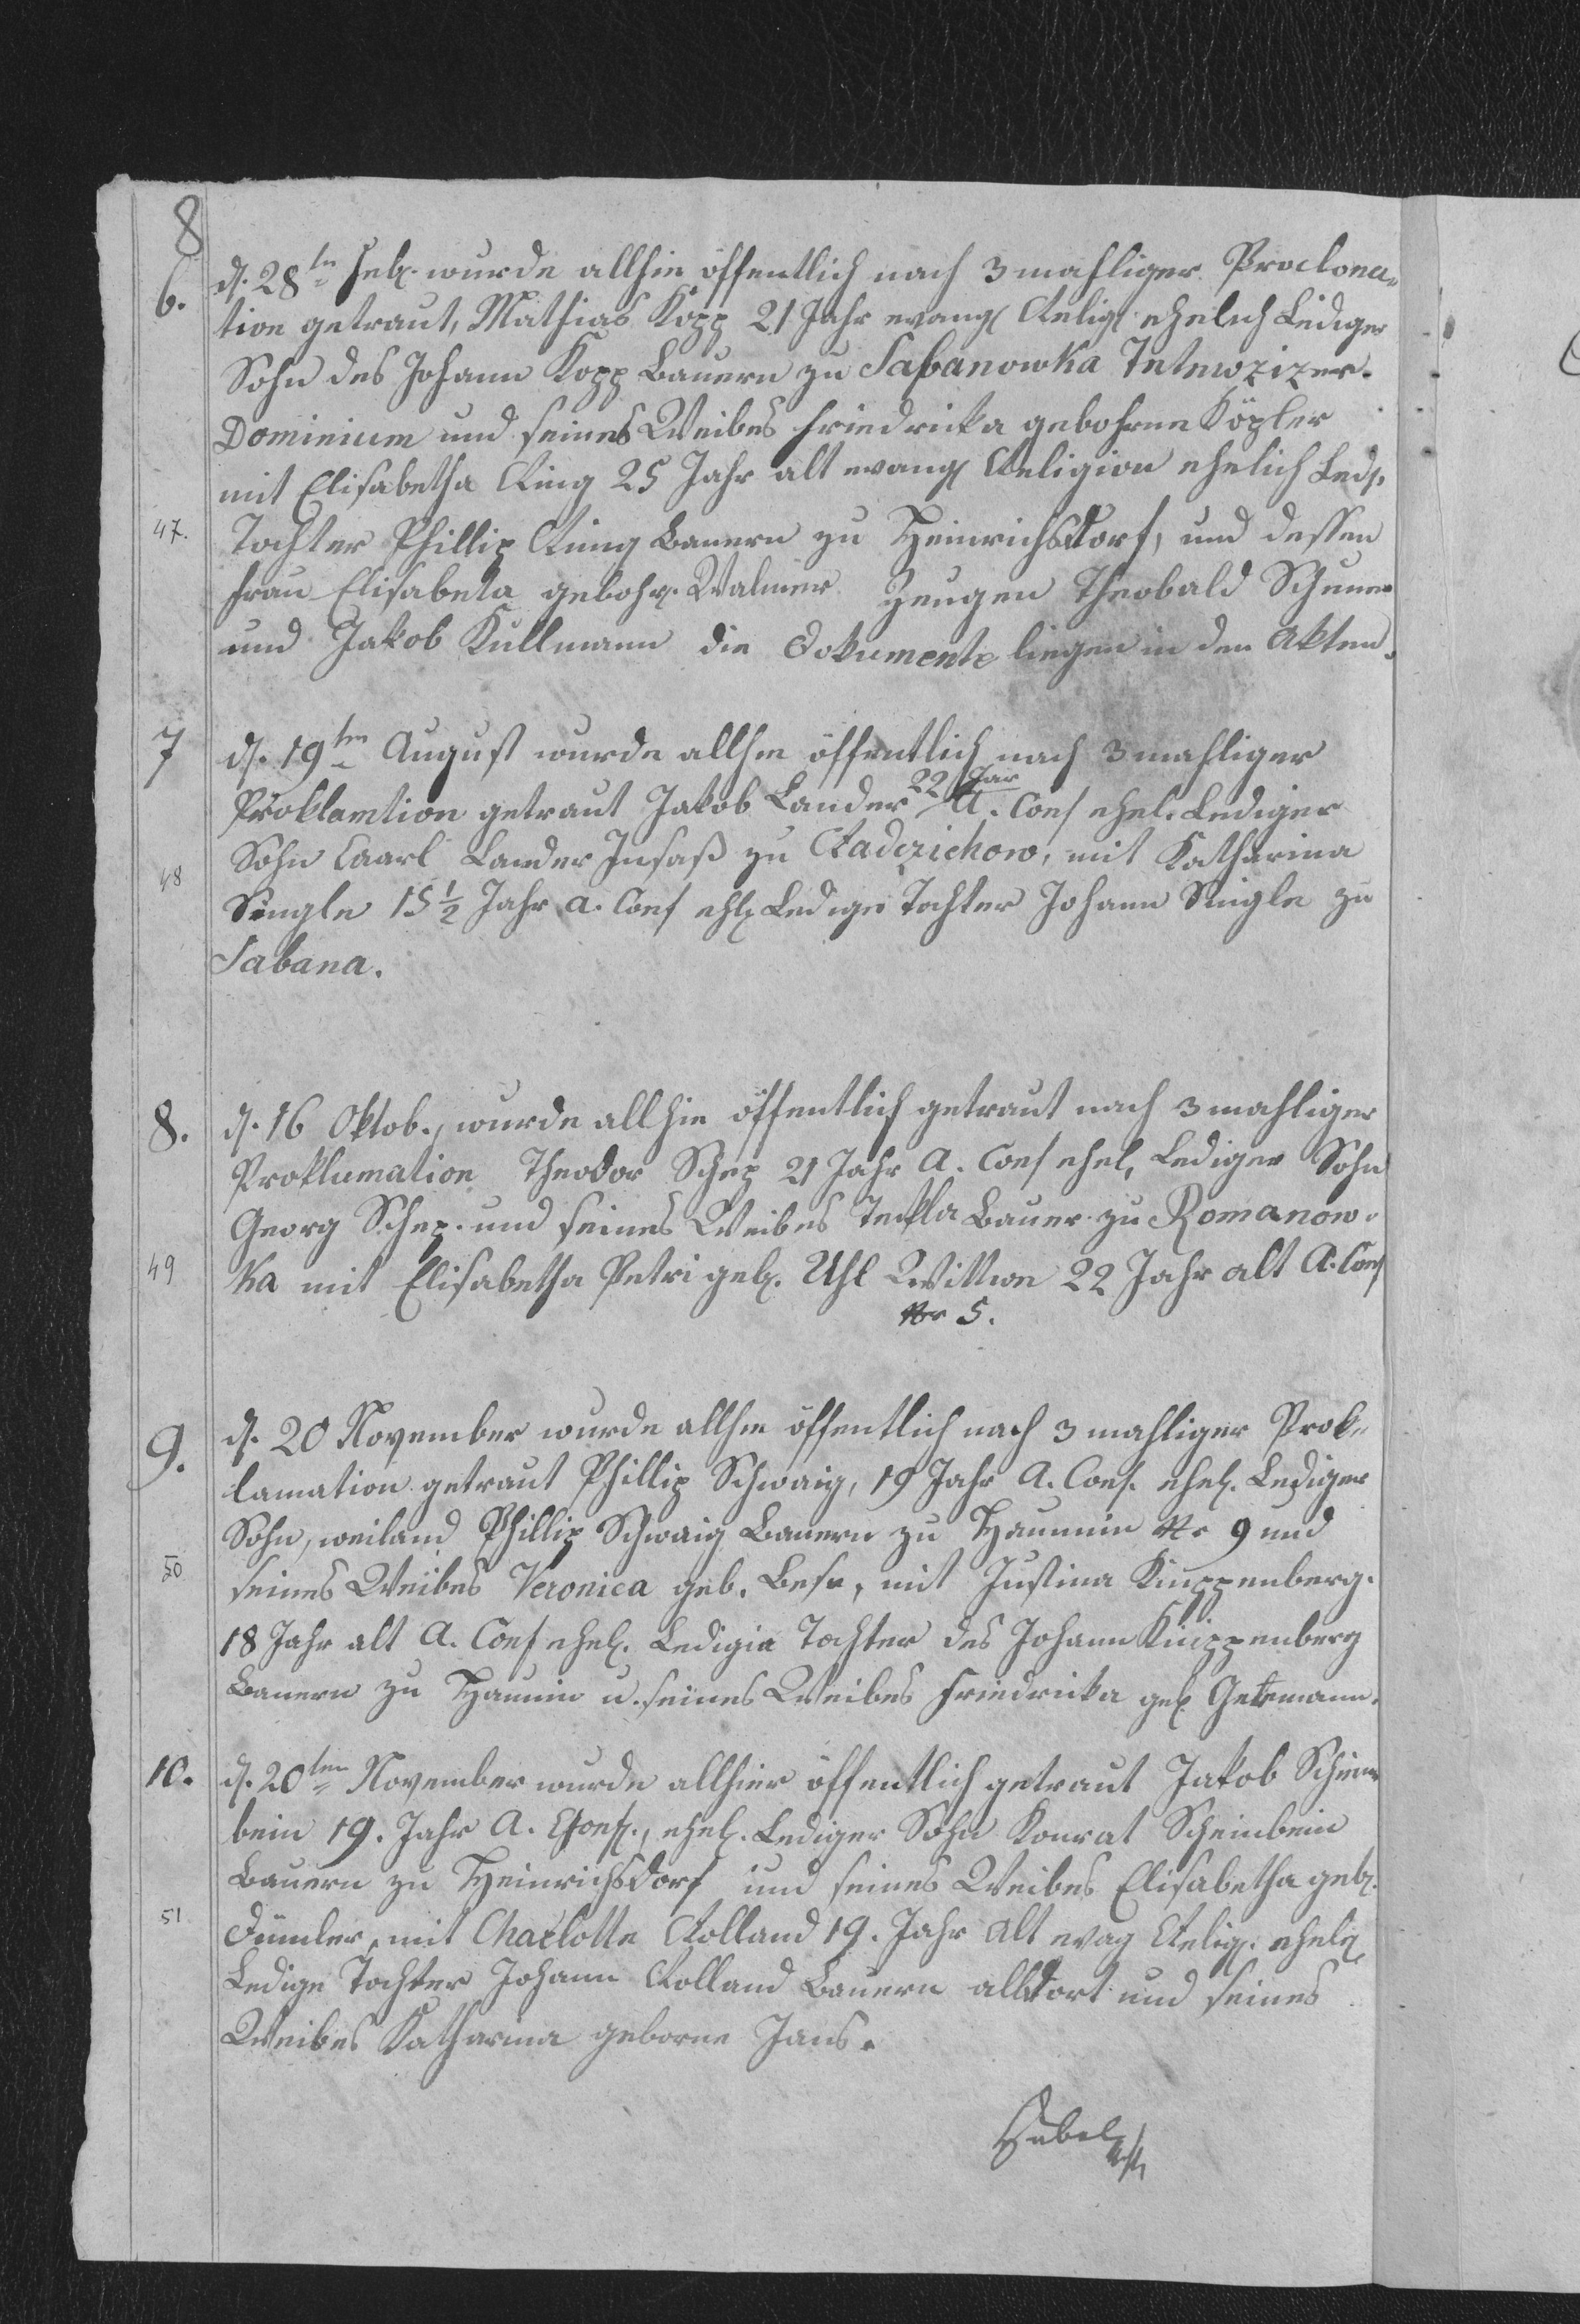 8
6. d. 28ten Feb. wurde allhie öffentlich nach 3 mahliger Proclona=
tion getraut, Mathias Kopp 21 Jahr evang Relig ehelich Lediger
Sohn des Johann Kopp Bauern zu Sabanowka
Dominium und seines Weibes Friedricka gebohrne Köpler
mit Elisabetha Ring 25 Jahr alt evang Religion ehelich Led.
47. Tochter Phillip Ring Bauern zu Heinrichsdorf, und dessen
Frau Elisabeta gebohr. Walmer Zeugen Theobald
und Jakob Kullmann die Dokumente liegen in den Akten.
7 d. 19ten August wurde allhie öffentlich nach 3 mahliger
22 Jar
Proklamtion getraut Jakob Lander A. Conf ehel. Lediger
48 Sohn Caarl Lander Insaß zu Radczichow, mit Katharina
Single 15 1/2 Jahr a. Conf ehl Ledige Tochter Johann Single zu
Sabana.
8. d. 16 Oktob., wurde allhie öffentlich getraut nach 3 mahliger
Proklumation Theodor Schez 21 Jahr A. Conf ehel. Lediger Sohn
Georg Schez. und seines Weibes Tekla Bauer zu Romanow=
49 ka mit Elisabetha Petri geb. Uhl Wittwe 22 Jahr alt A. Conf
Nr 5.
9. d. 20 November wurde allhie öffentlich nach 3 mahliger Prok=
lamation getraut Phillip Schweig, 19 Jahr A. Conf. ehel. Lediger
Sohn, weiland Phillip Schweig Bauern zu Haunnin Nr 9 und
50 seines Weibes Veronica geb. Besr, mit Justina Knippenberg.
18 Jahr alt A. Conf ehel. Ledigia Tochter des Johann Knippenberg
Bauern zu Haunin u. seines Weibes Friedricka geb. Getzmann.
10. d. 20ten November wurde allhier öffentlich getraut Jakob Schein=
bein 19. Jahr A. Conf., ehel. Lediger Sohn Konrat Scheinbein
Bauern zu Heinrichsdorf und seines Weibes Elisabetha geb.
51 Dümler, mit Charlotte Rolland 19. Jahr alt evag Relig. ehele
Ledige Tochter Johann Rolland Bauern alldort und seines
Weibes Katharina geborne Jans.